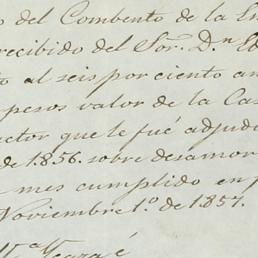 o del Combento de la En
recibido del Sor. Dn Ed
to al seis por ciento an
pesos valor de la Cas
actor que le fué adjudi
de 1856. sobre desamor
mes cumplido en f
Noviembre 1º de 1857.